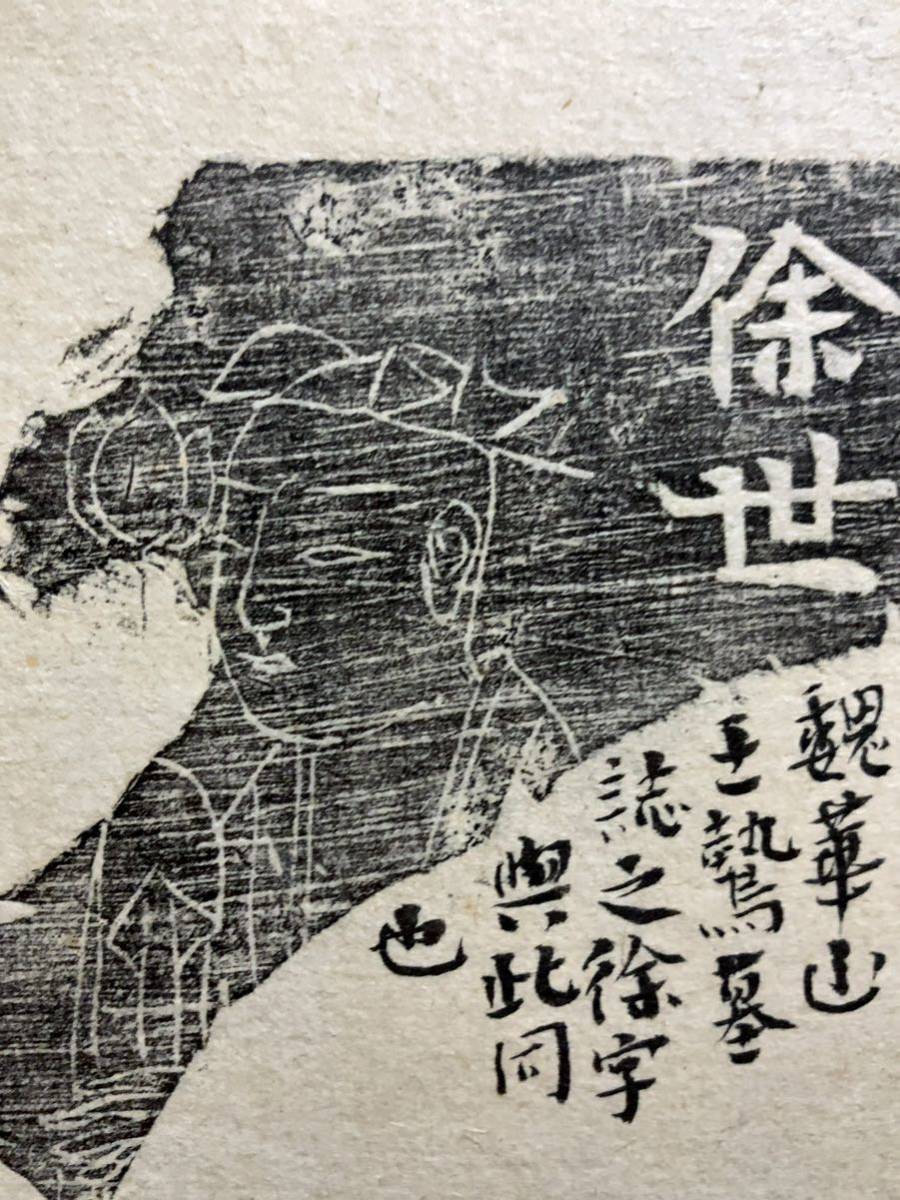 俆世
魏華山
王鷙墓
誌之徐字
與此同
也